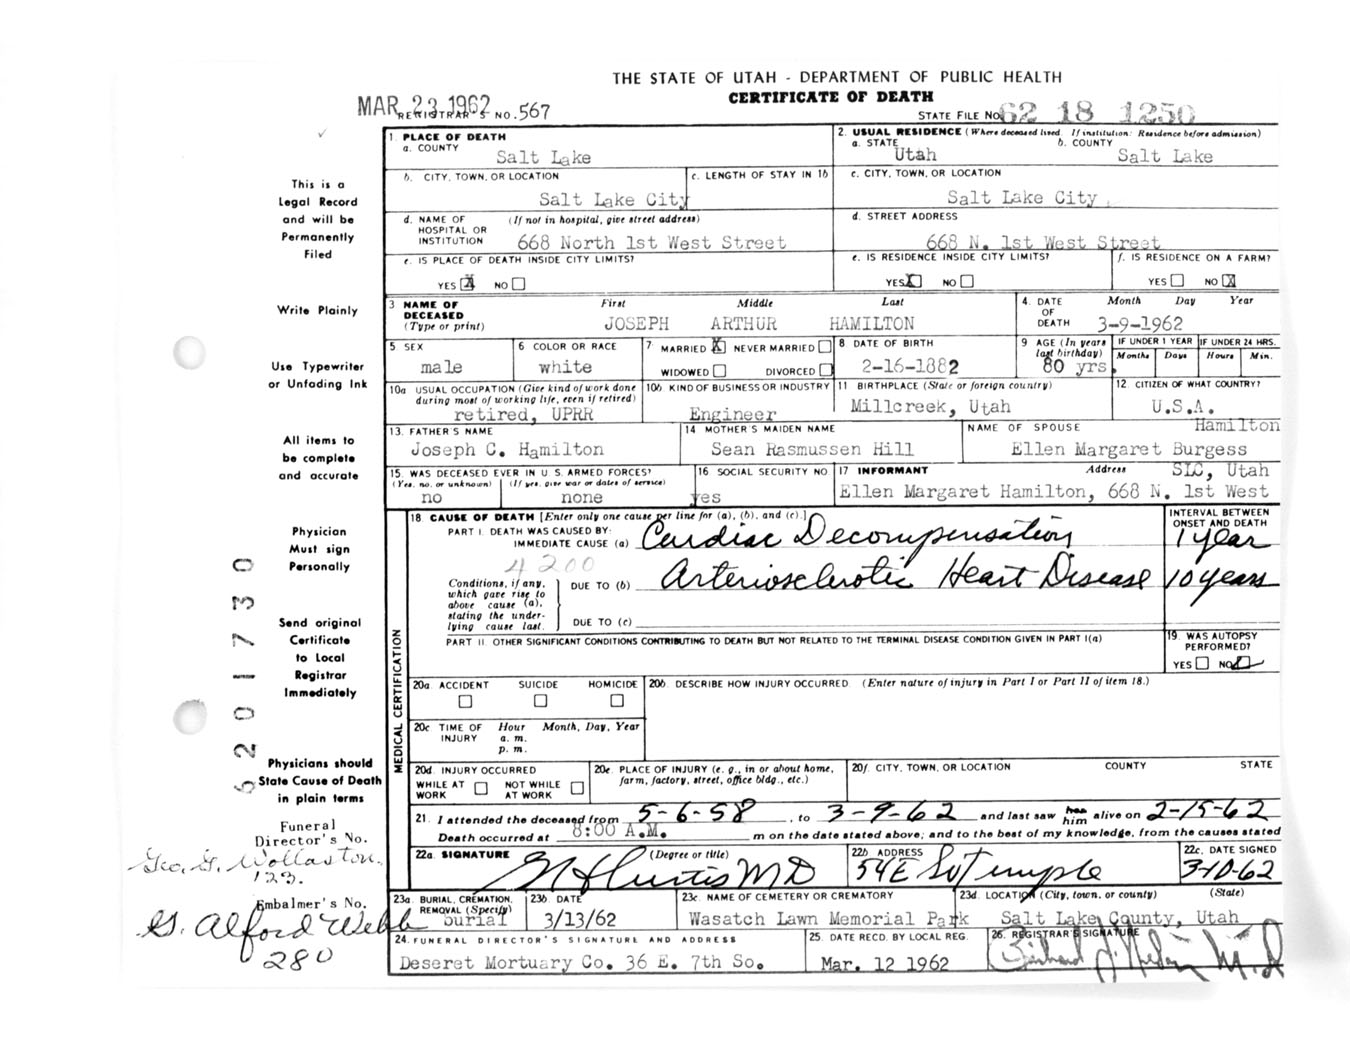 THE STATE OF UTAH - DEPARTMENT OF PUBLIC HEALTH
CERTIFICATE OF DEATH
MAR 23 1962
REGISTRAR'S NO. 567
STATE FILE No 62 18 1250
This is a
Legal Record
and will be
Permanently
Filed
Write Plainly
Use Typewriter
or Unfading Ink
All items to
be complete
and accurate
Physician
Must sign
Personally
Send original
Certificate
to Local
Registrar
Immediately
Physicians should
State Cause of Death
in plain terms
Funeral
Director's No.
Geo. G. Wollaston
123.
Embalmer's No.
G. Alford Webb
280
1 PLACE OF DEATH
a. COUNTY
Salt Lake
2. USUAL RESIDENCE (Where deceased lived. If institution: Residence before admission)
a. STATE b. COUNTY
Utah Salt Lake
b. CITY, TOWN, OR LOCATION
Salt Lake City
c. LENGTH OF STAY IN 1b
c. CITY, TOWN, OR LOCATION
Salt Lake City
d. NAME OF HOSPITAL OR INSTITUTION (If not in hospital, give street address)
668 North 1st West Street
d. STREET ADDRESS
668 N. 1st West Street
e. IS PLACE OF DEATH INSIDE CITY LIMITS?
YES X NO
e. IS RESIDENCE INSIDE CITY LIMITS?
YES X NO
f. IS RESIDENCE ON A FARM?
YES NO X
3 NAME OF DECEASED (Type or print) First Middle Last
JOSEPH ARTHUR HAMILTON
4. DATE OF DEATH Month Day Year
3-9-1962
5 SEX
male
6 COLOR OR RACE
white
7 MARRIED X NEVER MARRIED
WIDOWED DIVORCED
8 DATE OF BIRTH
2-16-1882
9 AGE (In years last birthday)
80 yrs.
IF UNDER 1 YEAR
Months Days
IF UNDER 24 HRS.
Hours Min.
10a USUAL OCCUPATION (Give kind of work done during most of working life, even if retired)
retired, UPRR
10b KIND OF BUSINESS OR INDUSTRY
Engineer
11 BIRTHPLACE (State or foreign country)
Millcreek, Utah
12. CITIZEN OF WHAT COUNTRY?
U.S.A.
13. FATHER'S NAME
Joseph C. Hamilton
14 MOTHER'S MAIDEN NAME
Sean Rasmussen Hill
NAME OF SPOUSE Hamilton
Ellen Margaret Burgess
15. WAS DECEASED EVER IN U. S. ARMED FORCES?
(Yes, no, or unknown) (If yes, give war or dates of service)
no none
16 SOCIAL SECURITY NO.
yes
17 INFORMANT Address SLC, Utah
Ellen Margaret Hamilton, 668 N. 1st West
MEDICAL CERTIFICATION
18 CAUSE OF DEATH [Enter only one cause per line for (a), (b), and (c).]
PART I. DEATH WAS CAUSED BY:
IMMEDIATE CAUSE (a) Cardiac Decompensation
INTERVAL BETWEEN ONSET AND DEATH
1 year
4200
Conditions, if any, which gave rise to above cause (a), stating the underlying cause last.
DUE TO (b) Arteriosclerotic Heart Disease 10 years
DUE TO (c)
PART II. OTHER SIGNIFICANT CONDITIONS CONTRIBUTING TO DEATH BUT NOT RELATED TO THE TERMINAL DISEASE CONDITION GIVEN IN PART I(a)
19. WAS AUTOPSY PERFORMED?
YES NO
20a. ACCIDENT SUICIDE HOMICIDE
20b. DESCRIBE HOW INJURY OCCURRED. (Enter nature of injury in Part I or Part II of item 18.)
20c TIME OF INJURY Hour Month, Day, Year
a. m.
p. m.
20d. INJURY OCCURRED
WHILE AT WORK NOT WHILE AT WORK
20e. PLACE OF INJURY (e. g., in or about home, farm, factory, street, office bldg., etc.)
20f. CITY, TOWN, OR LOCATION COUNTY STATE
21. I attended the deceased from 5-6-58, to 3-9-62 and last saw her him alive on 2-15-62
Death occurred at 8:00 A.M. m on the date stated above; and to the best of my knowledge, from the causes stated
22a. SIGNATURE (Degree or title)
Curtis MD
22b ADDRESS
54 E So Temple
22c. DATE SIGNED
3-10-62
23a. BURIAL, CREMATION, REMOVAL (Specify)
burial
23b. DATE
3/13/62
23c. NAME OF CEMETERY OR CREMATORY
Wasatch Lawn Memorial Park
23d. LOCATION (City, town, or county) (State)
Salt Lake County, Utah
24. FUNERAL DIRECTOR'S SIGNATURE AND ADDRESS
Deseret Mortuary Co. 36 E. 7th So.
25. DATE RECD. BY LOCAL REG.
Mar. 12 1962
26. REGISTRAR'S SIGNATURE
M.D